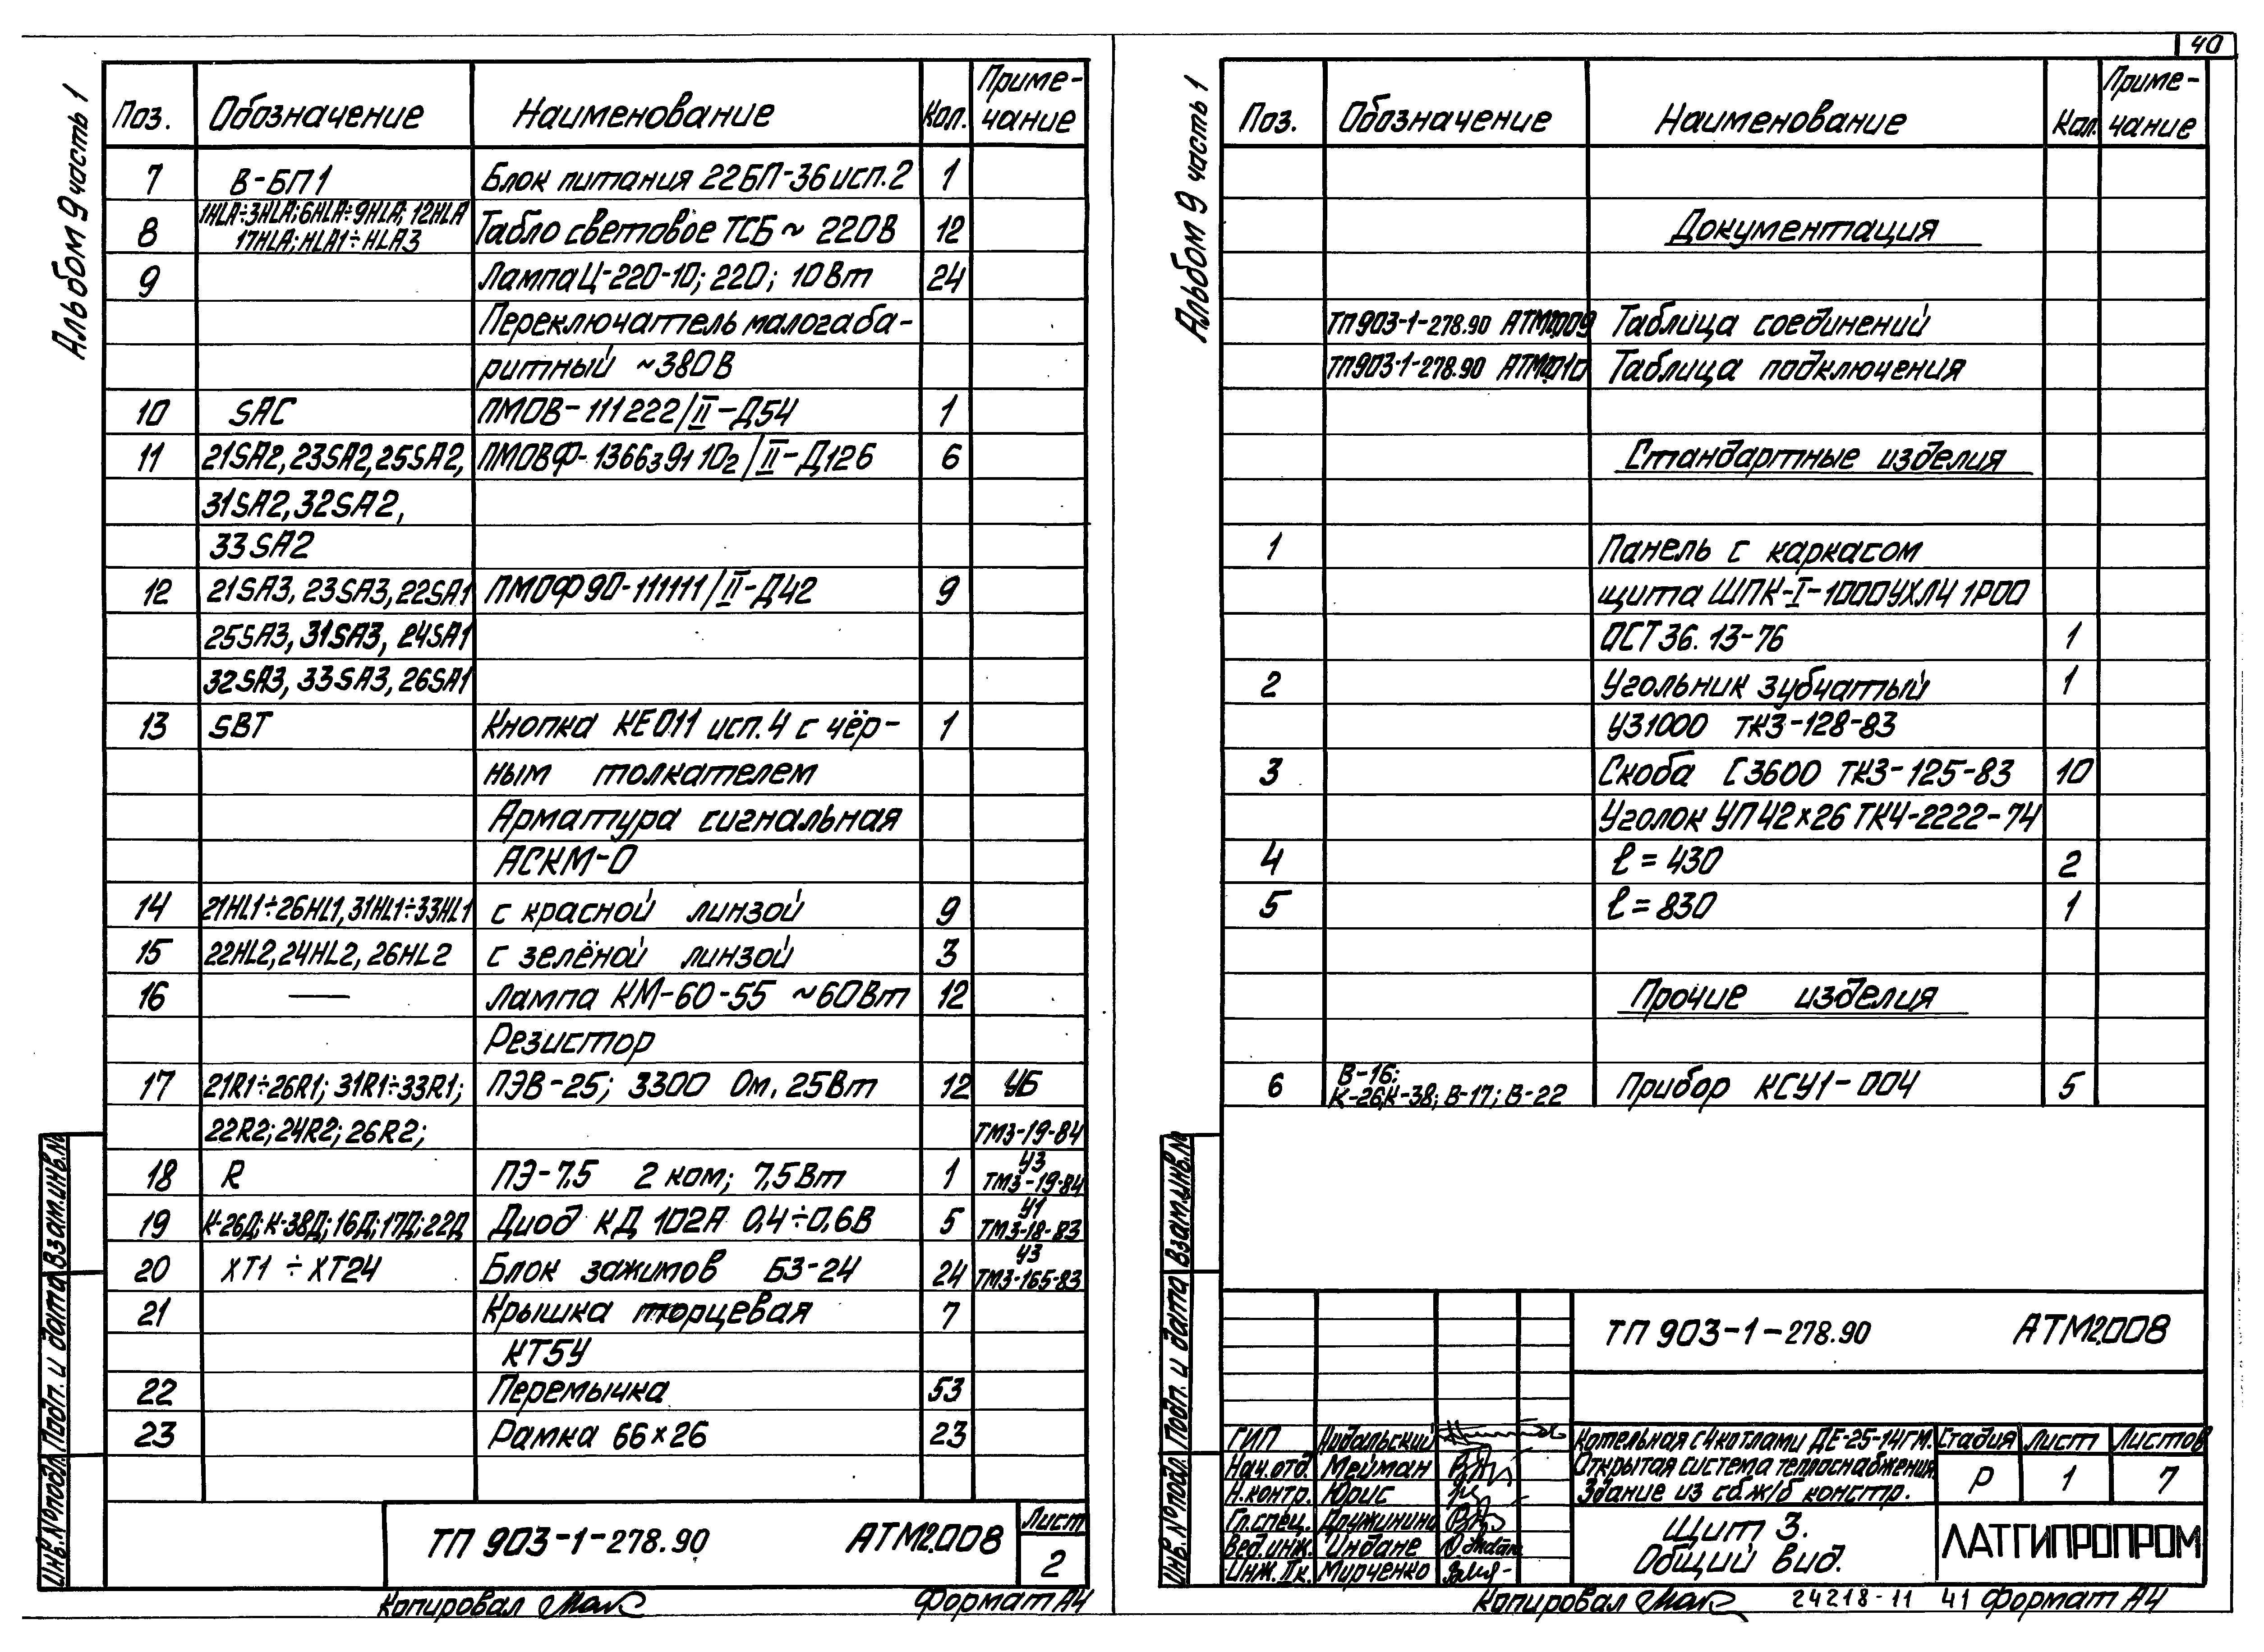 40
Альбом 9 часть 1
Поз. Обозначение Наименование Кол. Приме-
чание
7 В-БП1 Блок питания 22БП-36 исп.2 1
1HLA÷3HLA; 6HLA÷9HLA; 12HLA
8 17HLA; HLA1÷HLA3 Табло световое ТСБ ~ 220В 12
9 Лампа Ц-220-10; 220; 10Вт 24
Переключатель малогаба-
ритный ~380В
10 SAC ПМОВ-111222/II-Д54 1
11 21SA2, 23SA2, 25SA2, ПМОВФ-1366391102/II-Д126 6
31SA2, 32SA2,
33SA2
12 21SA3, 23SA3, 22SA1 ПМОФ90-111111/II-Д42 9
25SA3, 31SA3, 24SA1
32SA3, 33SA3, 26SA1
13 SBT Кнопка КЕ011 исп.4 с чёр- 1
ным толкателем
Арматура сигнальная
АСКМ-0
14 21HL1÷26HL1, 31HL1÷33HL1 с красной линзой 9
15 22HL2, 24HL2, 26HL2 с зелёной линзой 3
16 — Лампа КМ-60-55 ~60Вт 12
Резистор
17 21R1÷26R1; 31R1÷33R1; ПЭВ-25; 3300 Ом, 25Вт 12 УБ
22R2; 24R2; 26R2; ТМ3-19-84
18 R ПЭ-7,5 2 ком; 7,5Вт 1 У3
ТМ3-19-84
19 К-26Д; К-38Д; 16Д; 17Д; 22Д Диод КД 102А 0,4÷0,6В 5 У1
ТМ3-18-83
20 XT1 ÷ XT24 Блок зажимов БЗ-24 24 У3
ТМ3-165-83
21 Крышка торцевая 7
КТ5У
22 Перемычка 53
23 Рамка 66×26 23
Взам.инв.№
Подп. и дата
Инв.№подл.
ТП 903-1-278.90 АТМ2.008 Лист
2
Копировал Формат А4
Альбом 9 часть 1
Поз. Обозначение Наименование Кол. Приме-
чание
Документация
ТП903-1-278.90 АТМ2.009 Таблица соединений
ТП903-1-278.90 АТМ2.010 Таблица подключения
Стандартные изделия
1 Панель с каркасом
щита ШПК-I-1000УХЛ4 1Р00
ОСТ36.13-76 1
2 Угольник зубчатый 1
УЗ1000 ТК3-128-83
3 Скоба С3600 ТК3-125-83 10
Уголок УП42×26 ТК4-2222-74
4 ℓ = 430 2
5 ℓ = 830 1
Прочие изделия
В-16;
6 К-26; К-38; В-17; В-22 Прибор КСУ1-004 5
Взам.инв.№
Подп. и дата
Инв.№подл.
ТП 903-1-278.90 АТМ2.008
ГИП Нидальский
Нач.отд. Мейман
Н.контр. Юрис
Гл.спец. Дружинина
Вед.инж. Индане
Инж.IIк. Мурченко
Котельная с 4 котлами ДЕ-25-14ГМ.
Открытая система теплоснабжения.
Здание из сб.ж/б констр.
Стадия Лист Листов
Р 1 7
Щит 3.
Общий вид.
ЛАТГИПРОПРОМ
Копировал 24218-11 41 Формат А4